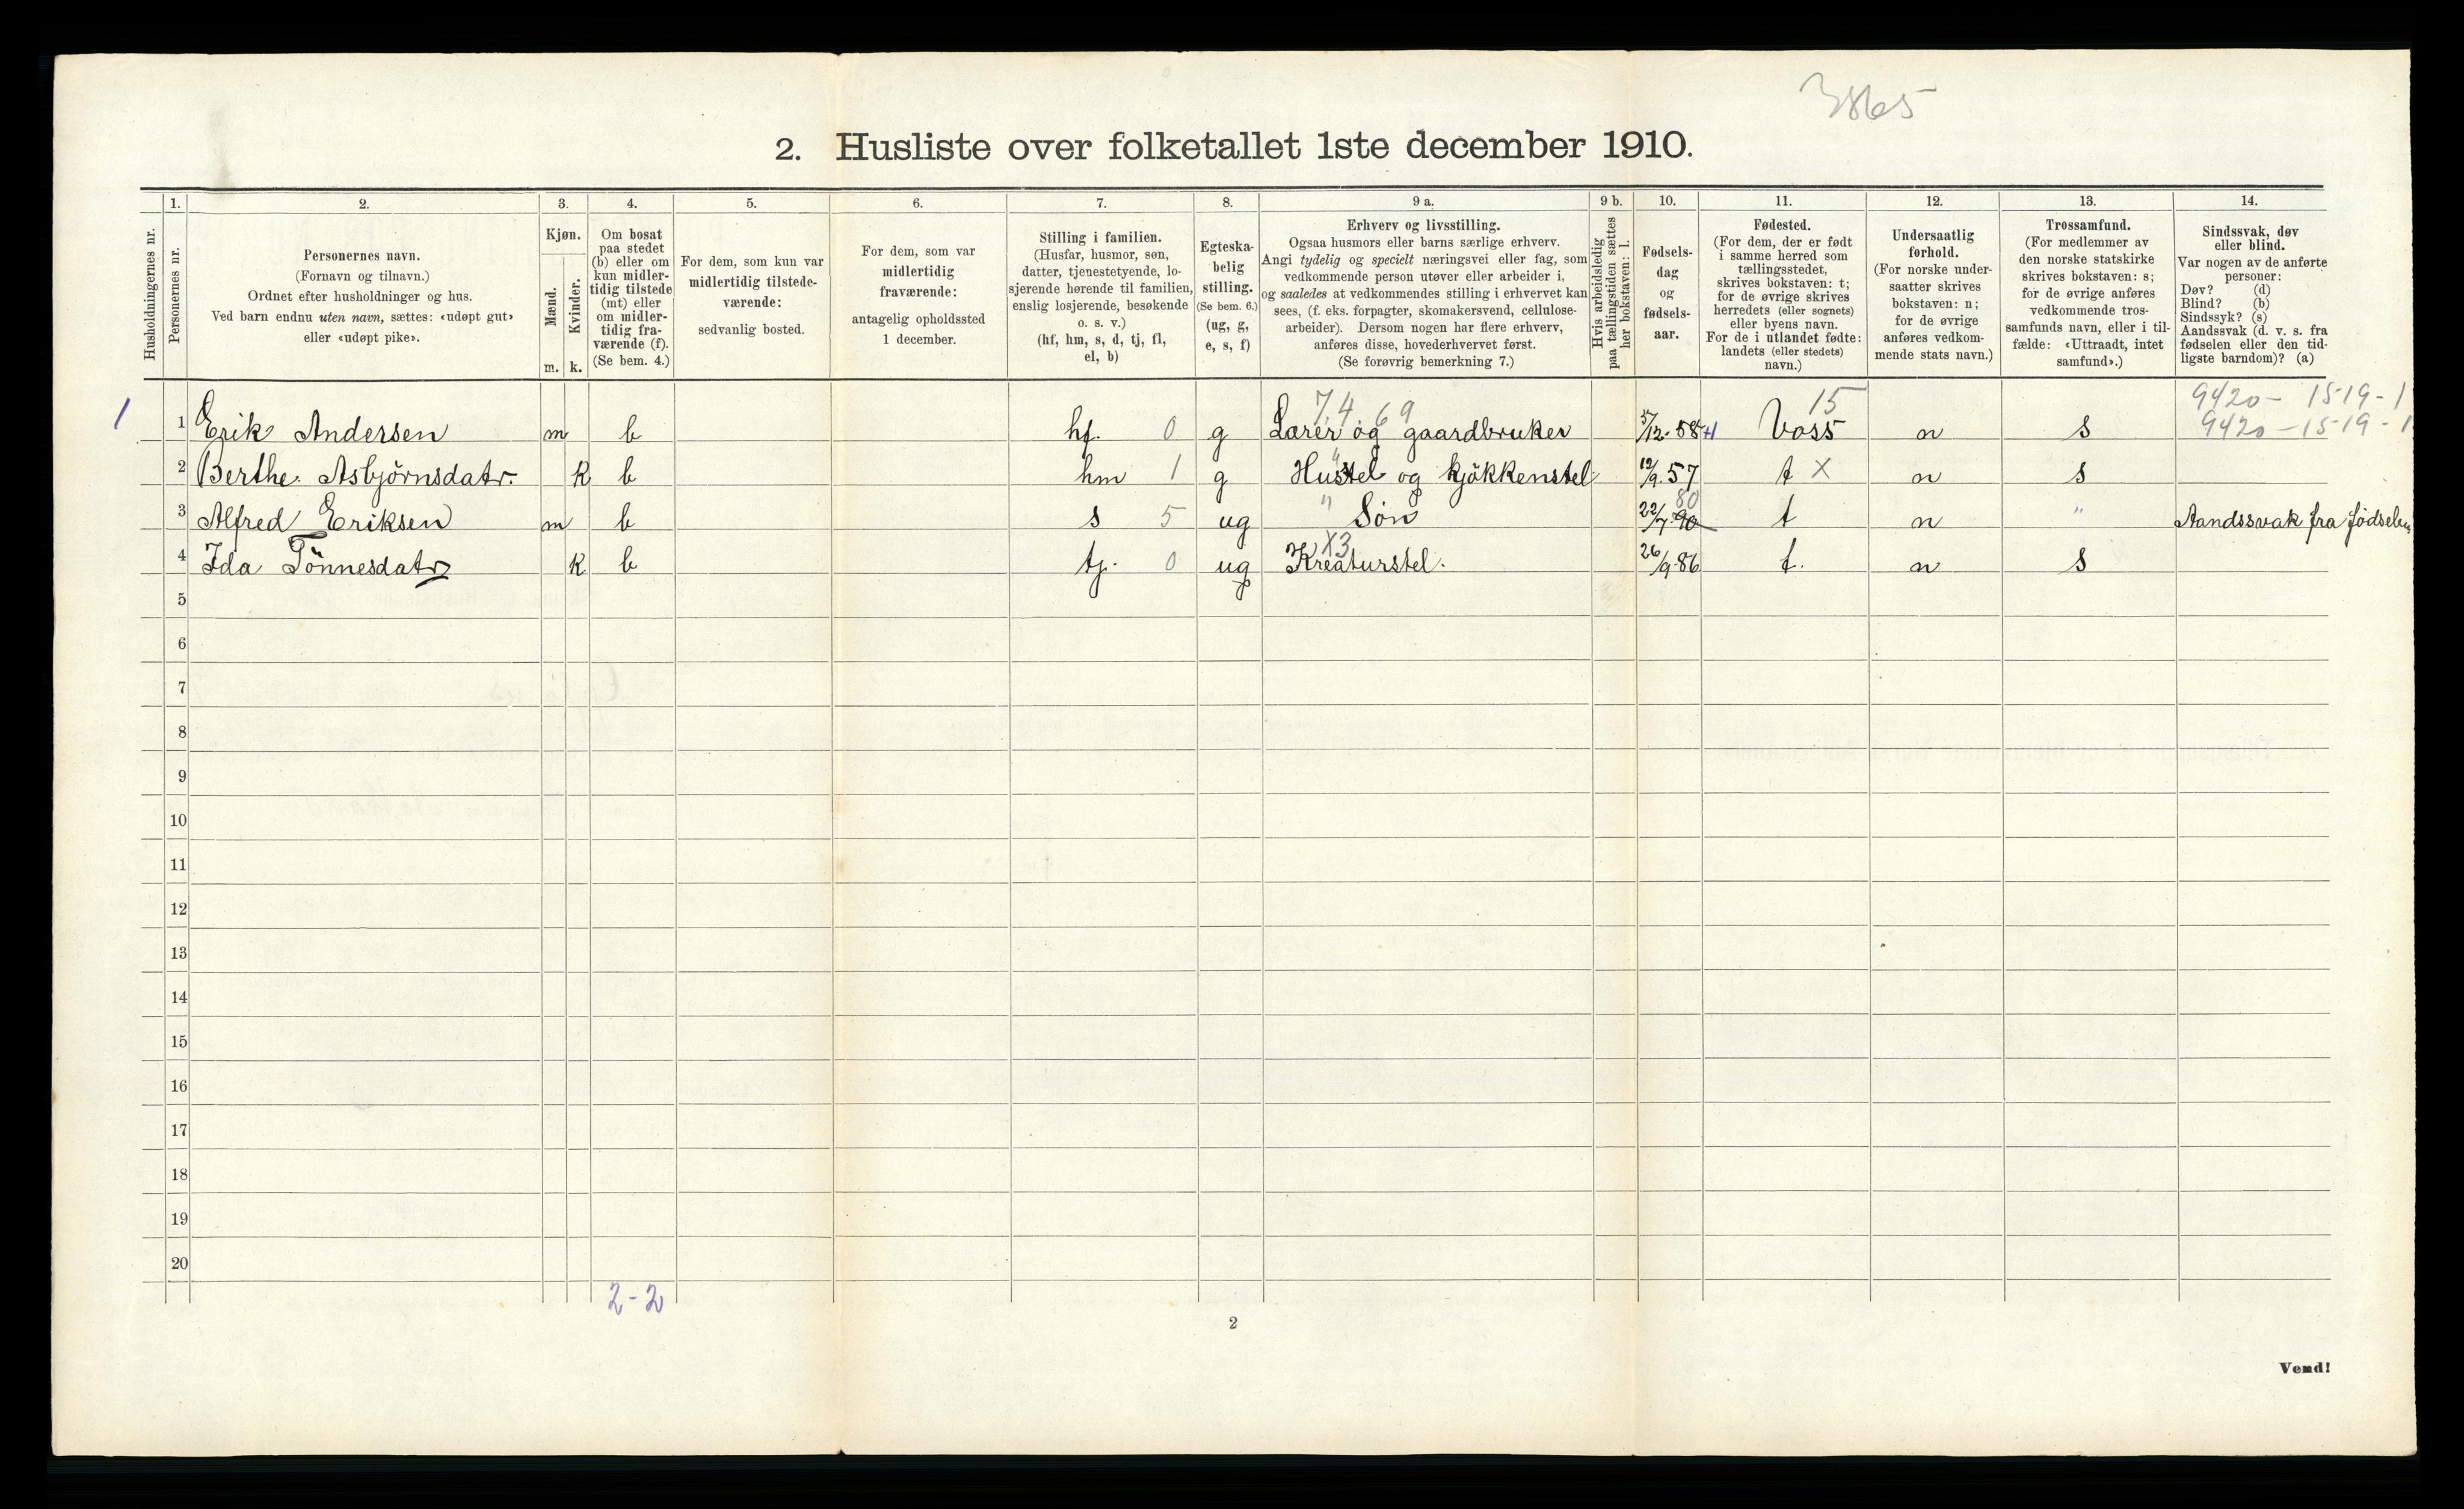 3865
2. Husliste over folketallet 1ste december 1910.
Husholdningernes nr.
1.
Personernes nr.
2.
Personernes navn.
(Fornavn og tilnavn.)
Ordnet efter husholdninger og hus.
Ved barn endnu uten navn, sættes: «udøpt gut»
eller «udøpt pike».
3.
Kjøn.
Mænd.
Kvinder.
m. k.
4.
Om bosat
paa stedet
(b) eller om
kun midler-
tidig tilstede
(mt) eller
om midler-
tidig fra-
værende (f).
(Se bem. 4.)
5.
For dem, som kun var
midlertidig tilstede-
værende:
sedvanlig bosted.
6.
For dem, som var
midlertidig
fraværende:
antagelig opholdssted
1 december.
7.
Stilling i familien.
(Husfar, husmor, søn,
datter, tjenestetyende, lo-
sjerende hørende til familien,
enslig losjerende, besøkende
o. s. v.)
(hf, hm, s, d, tj, fl,
el, b)
8.
Egteska-
belig
stilling.
(Se bem. 6.)
(ug, g,
e, s, f)
9 a.
Erhverv og livsstilling.
Ogsaa husmors eller barns særlige erhverv.
Angi tydelig og specielt næringsvei eller fag, som
vedkommende person utøver eller arbeider i,
og saaledes at vedkommendes stilling i erhvervet kan
sees, (f. eks. forpagter, skomakersvend, cellulose-
arbeider). Dersom nogen har flere erhverv,
anføres disse, hovederhvervet først.
(Se forøvrig bemerkning 7.)
9 b.
Hvis arbeidsledig
paa tællingstiden sættes
her bokstaven: l.
10.
Fødsels-
dag
og
fødsels-
aar.
11.
Fødested.
(For dem, der er født
i samme herred som
tællingsstedet,
skrives bokstaven: t;
for de øvrige skrives
herredets (eller sognets)
eller byens navn.
For de i utlandet fødte:
landets (eller stedets)
navn.)
12.
Undersaatlig
forhold.
(For norske under-
saatter skrives
bokstaven: n;
for de øvrige
anføres vedkom-
mende stats navn.)
13.
Trossamfund.
(For medlemmer av
den norske statskirke
skrives bokstaven: s;
for de øvrige anføres
vedkommende tros-
samfunds navn, eller i til-
fælde: «Uttraadt, intet
samfund».)
14.
Sindssvak, døv
eller blind.
Var nogen av de anførte
personer:
Døv? (d)
Blind? (b)
Sindssyk? (s)
Aandssvak (d. v. s. fra
fødselen eller den tid-
ligste barndom)? (a)
7.4.69 15 9420 - 15-19 - 1
1 1 Erik Andersen m b hf. 0 g Lærer og gaardbruker 5/12-58 Voss n s 9420 - 15-19 - 1
2 Berthe Asbjörnsdatr. k b hm 1 g Husstel og kjökkenstel 19/9.57 t X n s
3 Alfred Eriksen m b s 5 ug " Sön 22/7-90 80 t n " Aandssvak fra födselen
X3
4 Ida Tönnesdatr k b tj. 0 ug Kreaturstel. 26/9-86 t. n s
5
6
7
8
9
10
11
12
13
14
15
16
17
18
19
20
2-2
2
Vend!